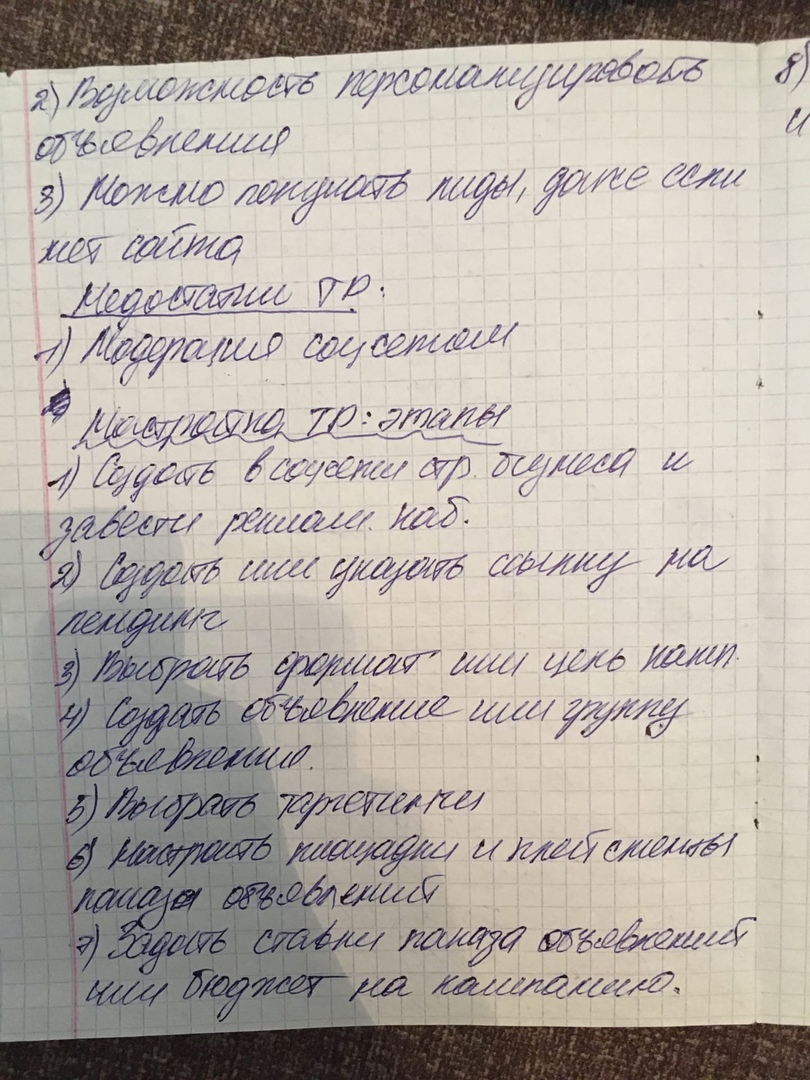 2) Возможность персонализировать
объявления
3) Можно покупать лиды, даже если
нет сайта
Недостатки ТР:
1) Модерация соцсетей
Настройка ТР: этапы
1) Создать в соцсети стр. бизнеса и
завести реклам. каб.
2) Создать или указать ссылку на
лендинг
3) Выбрать формат или цель камп.
4) Создать объявление или группу
объявлений.
5) Выбрать таргетинги
6) Настроить площадки и плейсменты
показа объявлений
7) Задать ставки показа объявлений
или бюджет на кампанию.
8)
и